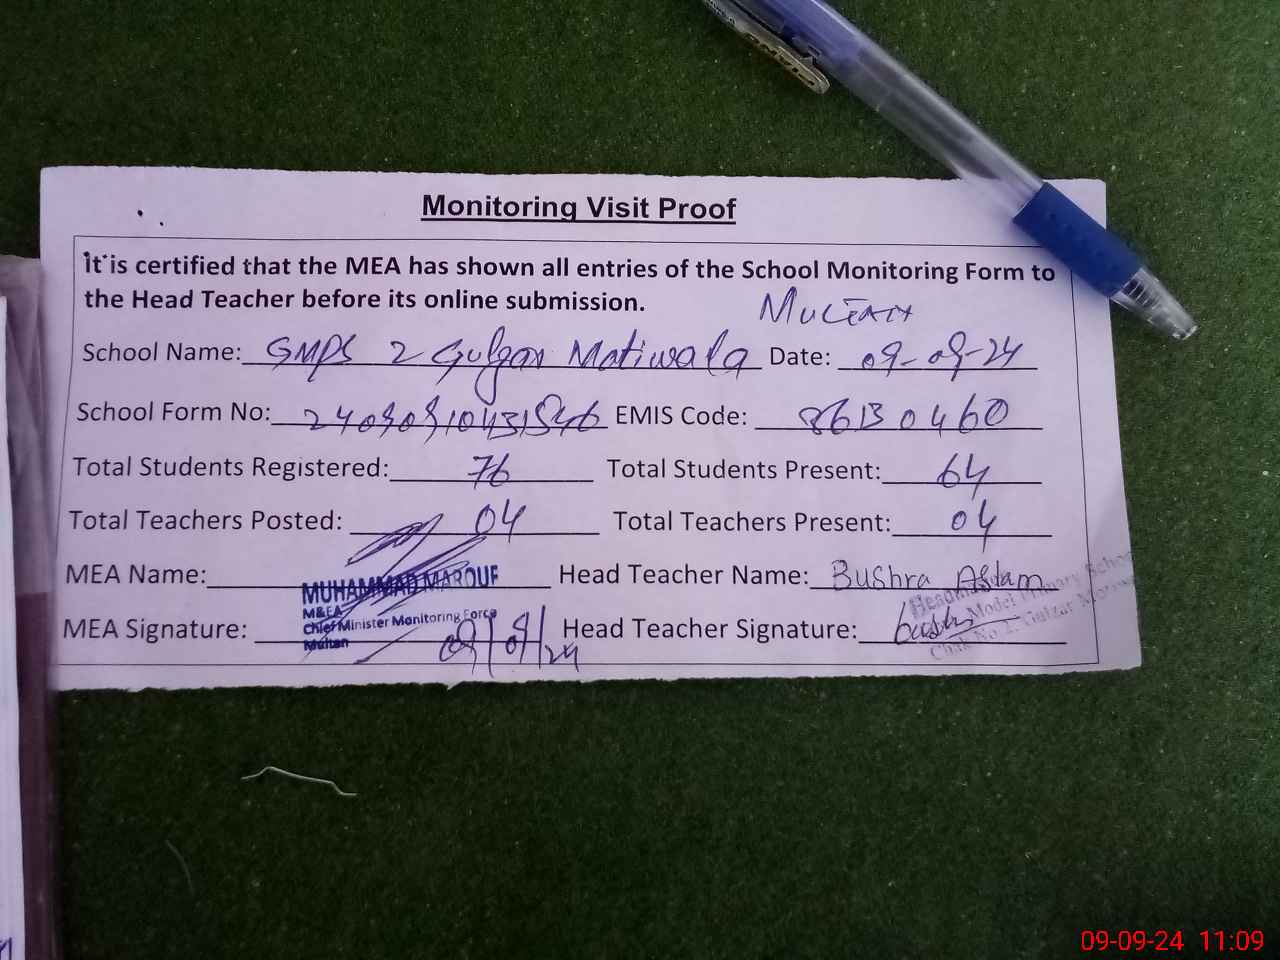 PIANO
Monitoring Visit Proof
It is certified that the MEA has shown all entries of the School Monitoring Form to
the Head Teacher before its online submission.
Multan
School Name: GMPS 2 Gulzar Motiwala Date: 09-09-24
School Form No: EMIS Code:
Total Students Registered: 76 Total Students Present: 64
Total Teachers Posted: 04 Total Teachers Present: 04
MEA Name: MUHAMMAD MAROUF Head Teacher Name: Bushra Aslam
M&EA
Chief Minister Monitoring Force
Multan
MEA Signature: 09/09/24 Head Teacher Signature: bushra
Model Primary School
Chak No 2, Gulzar
09-09-24 11:09